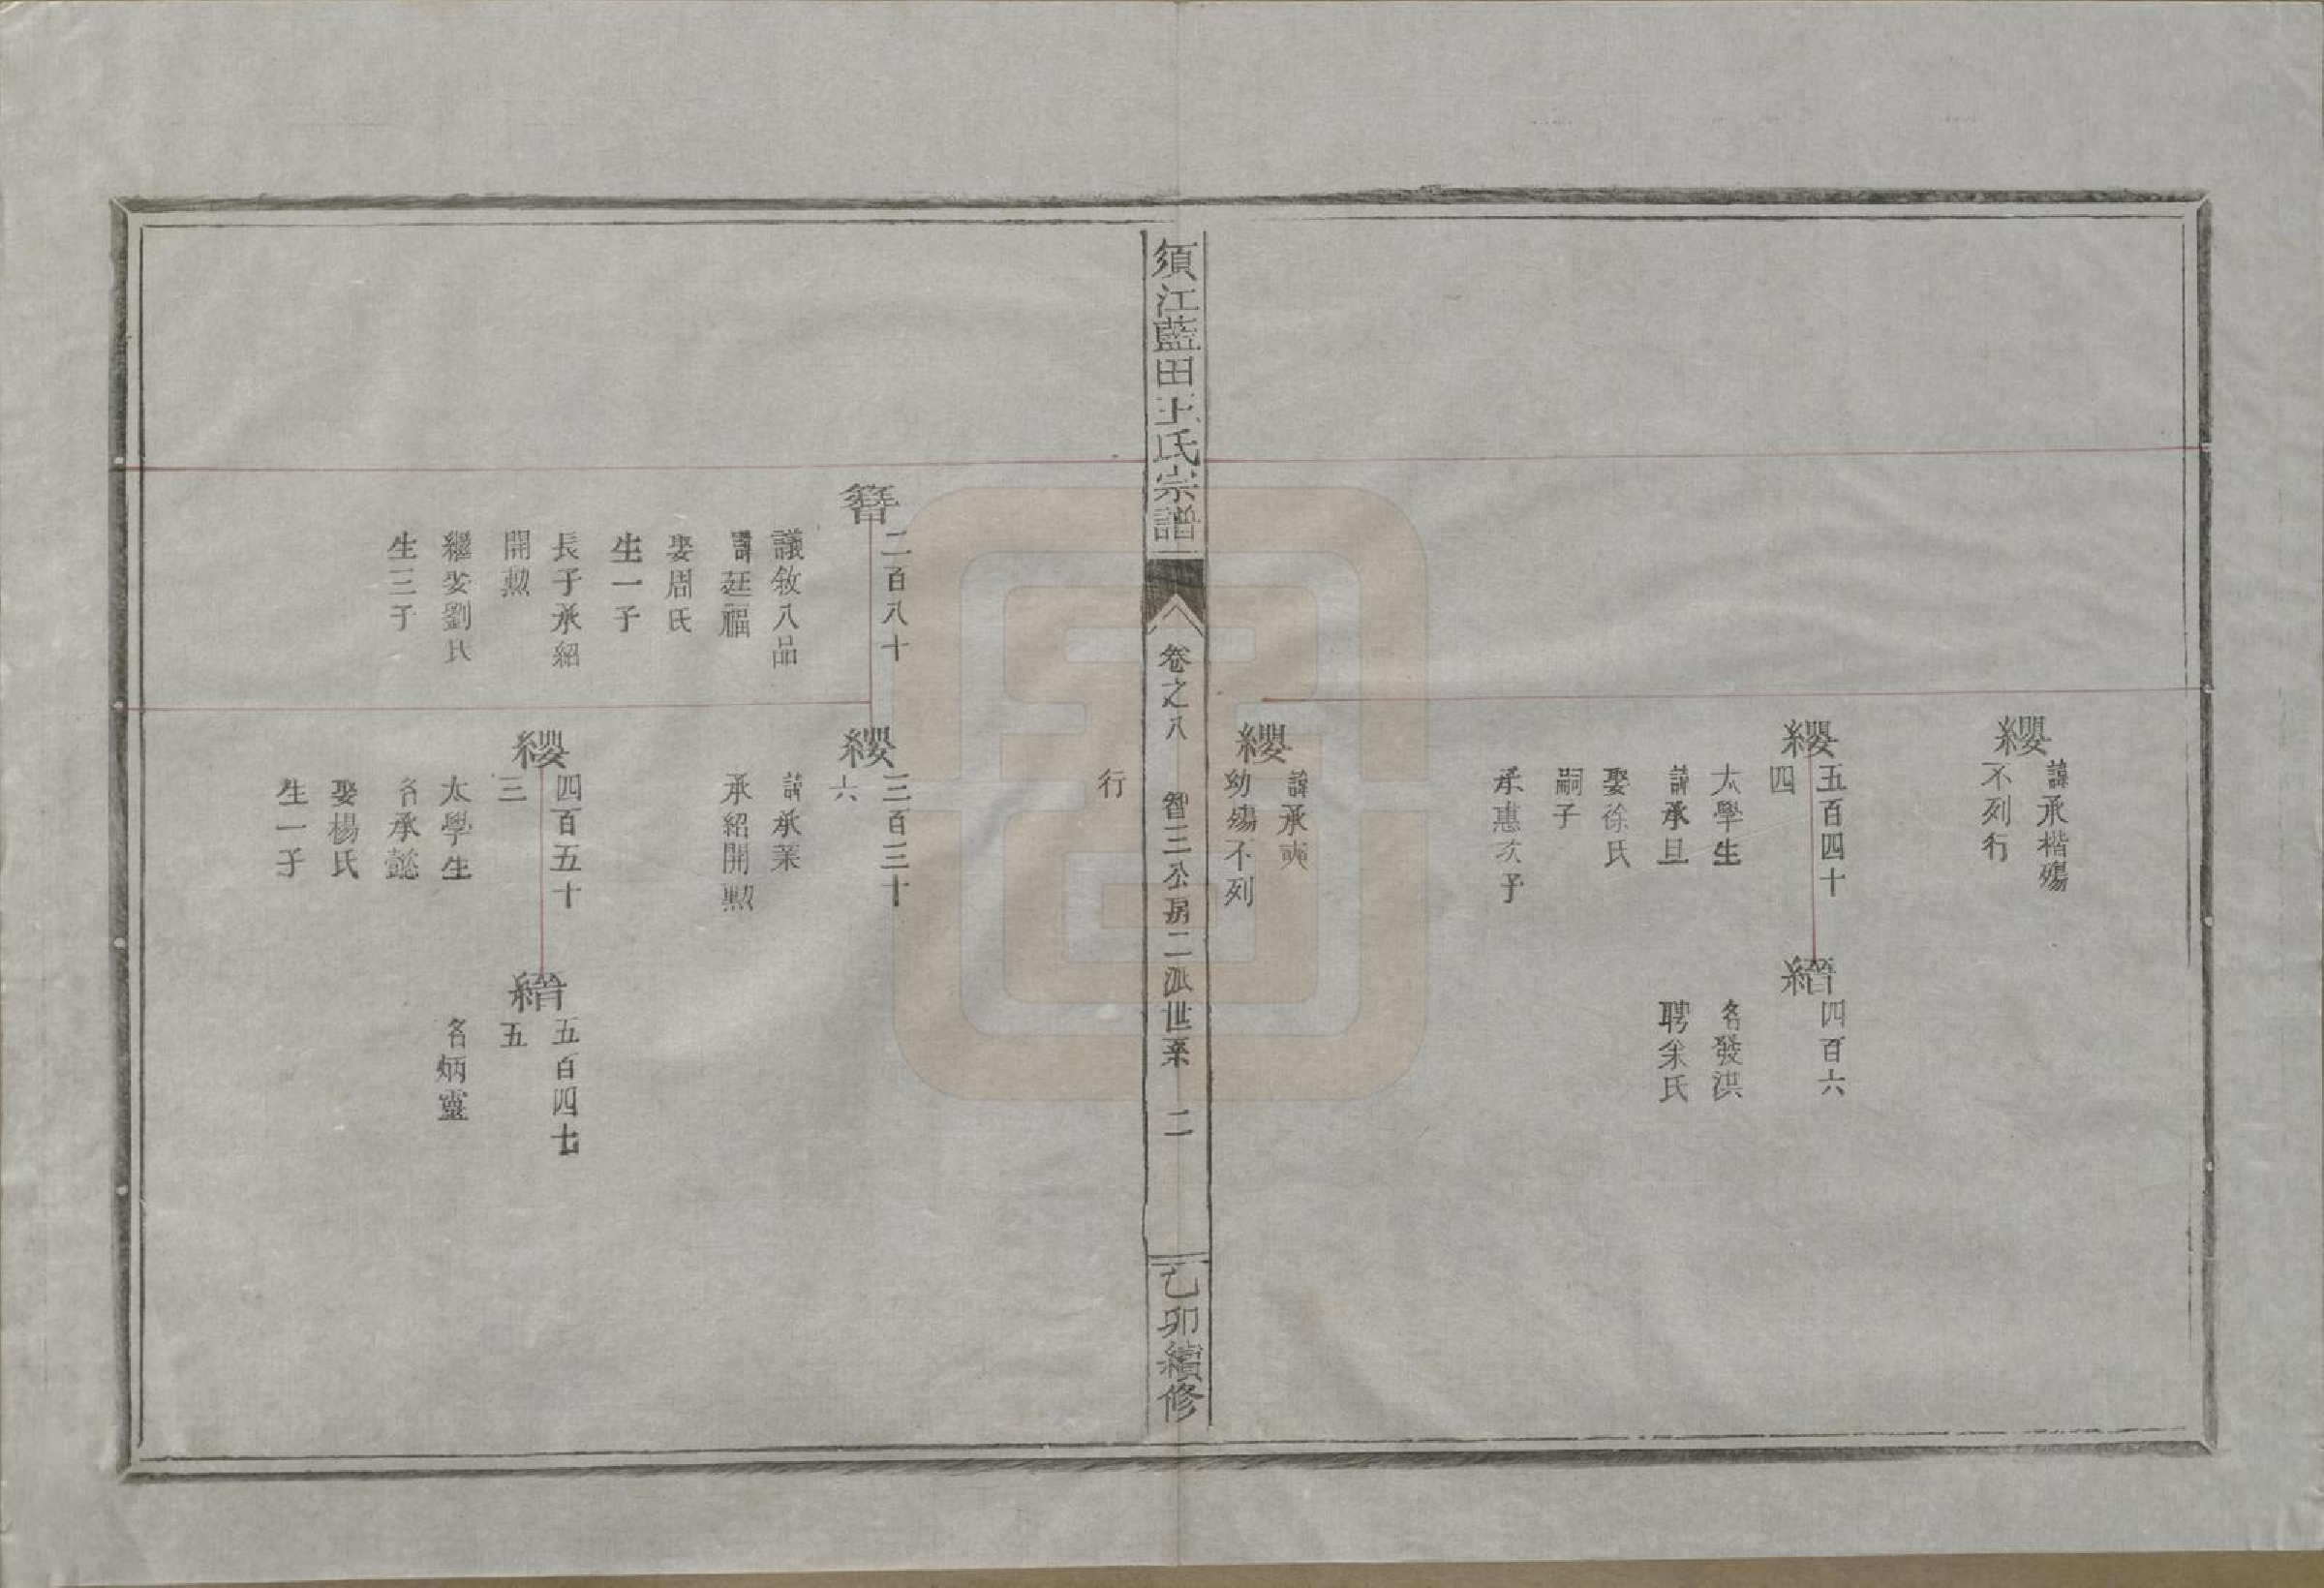 纓
諱承楷殤
不列行
纓
五百四十
四
太學生
諱承旦
娶徐氏
嗣子
承惠次子
縉
四百六
名發洪
聘余氏
纓
諱承爽
幼殤不列
須江藍田王氏宗譜
卷之八
智三公房二派世系
二
乙卯續修
行
簪
二百八十
議敘八品
諱廷福
娶周氏
生一子
長子承紹
開勲
繼娶劉氏
生三子
纓
三百三十
六
諱承業
承紹開勲
纓
四百五十
三
太學生
名承懿
娶楊氏
生一子
縉
五百四七
五
名炳靈